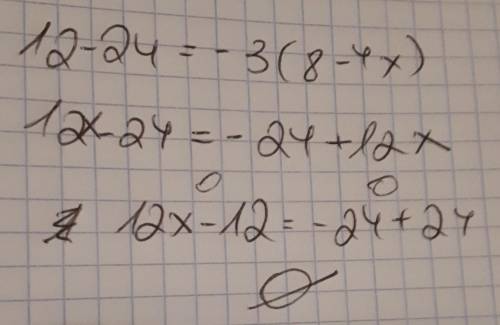 12-24 = -3(8-4x)
12x-24 = -24+12x
0 0
12x-12 = -24+24
∅